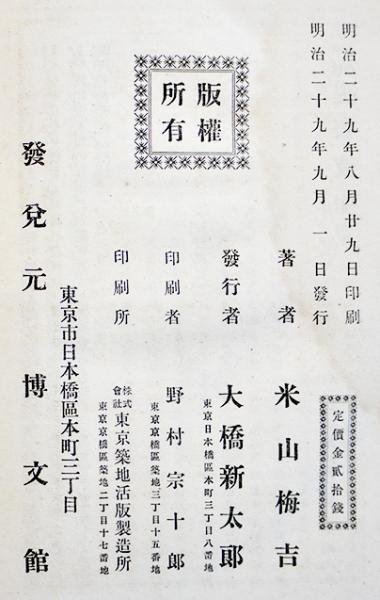 明治二十九年八月廿九日印刷
明治二十九年九月一日發行
版權
所有
定價金貳拾錢
著者 米山梅吉
發行者 大橋新太郎
東京日本橋區本町三丁目八番地
印刷者 野村宗十郎
東京京橋區築地三丁目十五番地
印刷所 株式會社東京築地活版製造所
東京京橋區築地二丁目十七番地
東京市日本橋區本町三丁目
發兌元 博文館